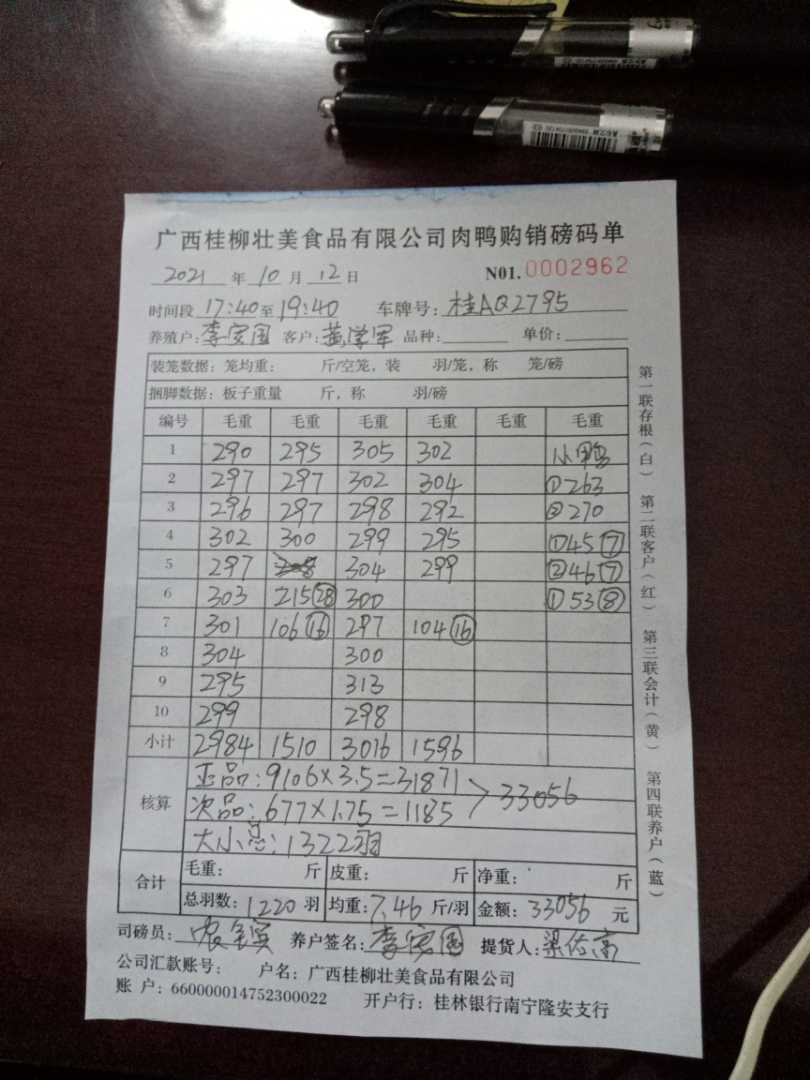 广西桂柳壮美食品有限公司肉鸭购销磅码单
2021 年 10 月 12 日 N01. 0002962
时间段 17:40 至 19:40 车牌号: 桂AQ2795
养殖户: 李安国 客户: 黄学军 品种: 单价:
装笼数据: 笼均重: 斤/空笼, 装 羽/笼, 称 笼/磅
捆脚数据: 板子重量 斤, 称 羽/磅
编号 毛重 毛重 毛重 毛重 毛重 毛重
1 290 295 305 302 小鸭
2 297 297 302 304 ①263
3 296 297 298 292 ②270
4 302 300 299 295 ①45⑦
5 297 304 299 ②46⑦
6 303 215㉘ 300 ①53⑧
7 301 106⑯ 297 104⑯
8 304 300
9 295 313
10 299 298
小计 2984 1510 3016 1596
核算
正品: 9106×3.5=31871
次品: 677×1.75=1185 >33056
大小总: 1322羽
合计
毛重: 斤 皮重: 斤 净重: 斤
总羽数: 1220 羽 均重: 7.46 斤/羽 金额: 33056 元
司磅员: 养户签名: 李安国 提货人: 梁佑高
公司汇款账号: 户名: 广西桂柳壮美食品有限公司
账 户: 660000014752300022 开户行: 桂林银行南宁隆安支行
第一联存根(白) 第二联客户(红) 第三联会计(黄) 第四联养户(蓝)